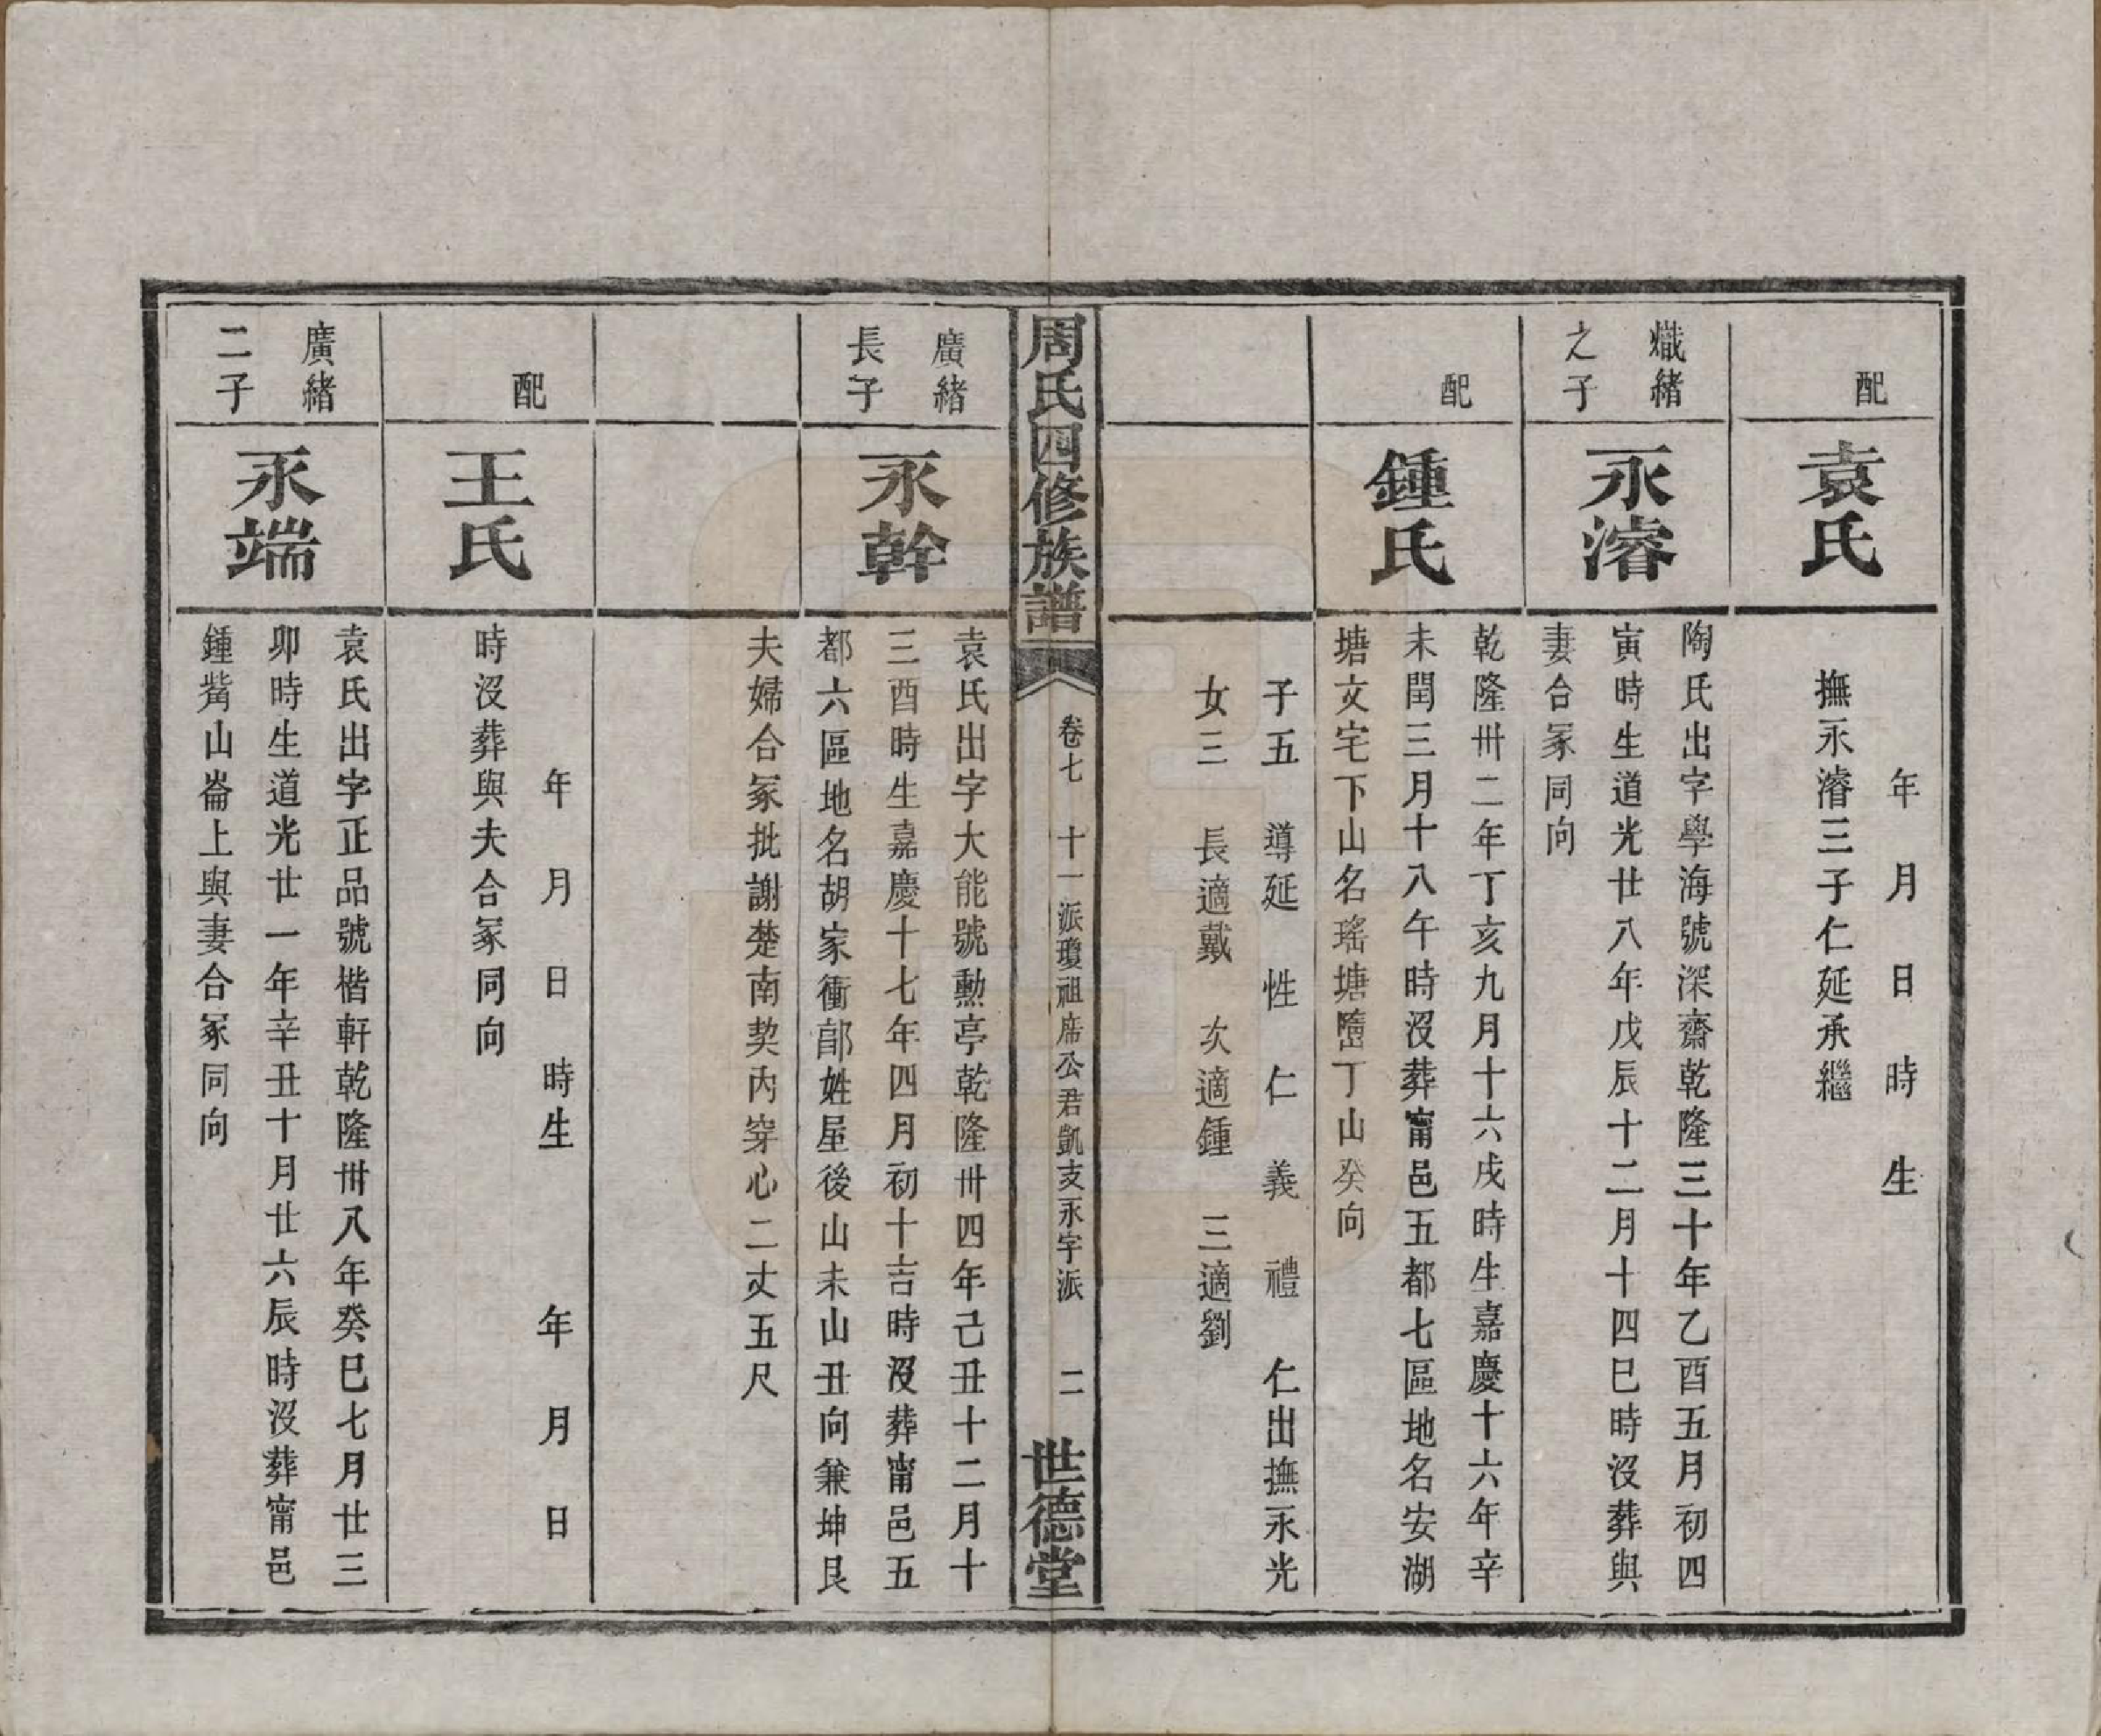 配
袁氏
年月日時生
撫永濬三子仁延承繼
熾緒
之子
永濬
陶氏出字學海號深齋乾隆三十年乙酉五月初四
寅時生道光廿八年戊辰十二月十四巳時沒葬與
妻合冢同向
配
鍾氏
乾隆卅二年丁亥九月十六戌時生嘉慶十六年辛
未閏三月十八午時沒葬甯邑五都七區地名安湖
塘文宅下山名瑤塘丁山癸向
子五 導延 性 仁 義 禮 仁出撫永光
女三 長適戴 次適鍾 三適劉
周氏四修族譜
卷七 十一派瓊祖席公君凱支永字派 二
世德堂
廣緒
長子
永幹
袁氏出字大能號勳亭乾隆卅四年己丑十二月十
三酉時生嘉慶十七年四月初十吉時沒葬甯邑五
都六區地名胡家衝鄗姓屋後山未山丑向兼坤艮
夫婦合冢批謝楚南契內穿心二丈五尺
配
王氏
年月日時生 年月日
時沒葬與夫合冢同向
廣緒
二子
永端
袁氏出字正品號楷軒乾隆卅八年癸巳七月廿三
卯時生道光廿一年辛丑十月廿六辰時沒葬甯邑
鍾觜山崙上與妻合冢同向